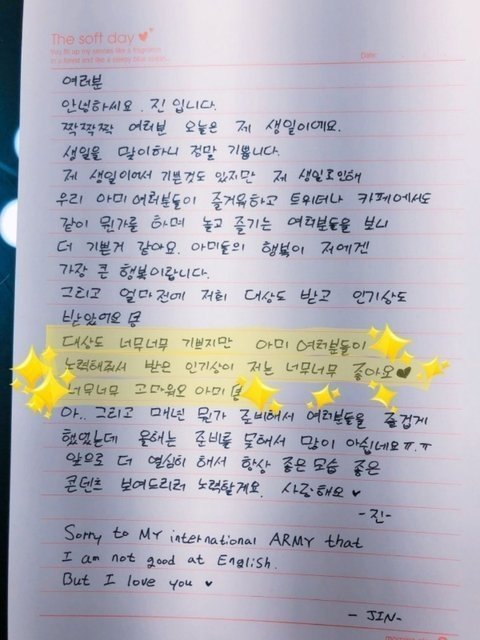 The soft day
Date:
여러분
안녕하세요. 진입니다.
짝짝짝 여러분 오늘은 제 생일이에요.
생일을 맞이하니 정말 기쁩니다.
제 생일이어서 기쁜것도 있지만 제 생일로인해
우리 아미여러분들이 즐거워하고 트위터나 카페에서도
같이 뭔가를 하며 놀고 즐기는 여러분들을 보니
더 기쁜거 같아요. 아미들의 행복이 저에겐
가장 큰 행복이랍니다.
그리고 얼마전에 저희 대상도 받고 인기상도
받았어요
대상도 너무너무 기쁘지만 아미 여러분들이
노력해줘서 받은 인기상이 저는 너무너무 좋아요♥
너무너무 고마워요 아미
아.. 그리고 매년 뭔가 준비해서 여러분들을 즐겁게
했었는데 올해는 준비를 못해서 많이 아쉽네요ㅠ.ㅠ
앞으로 더 열심히 해서 항상 좋은 모습 좋은
콘텐츠 보여드리려 노력할게요. 사랑해요 ♥
-진-
Sorry to MY international ARMY that
I am not good at English.
But I love you ♥
- JIN-